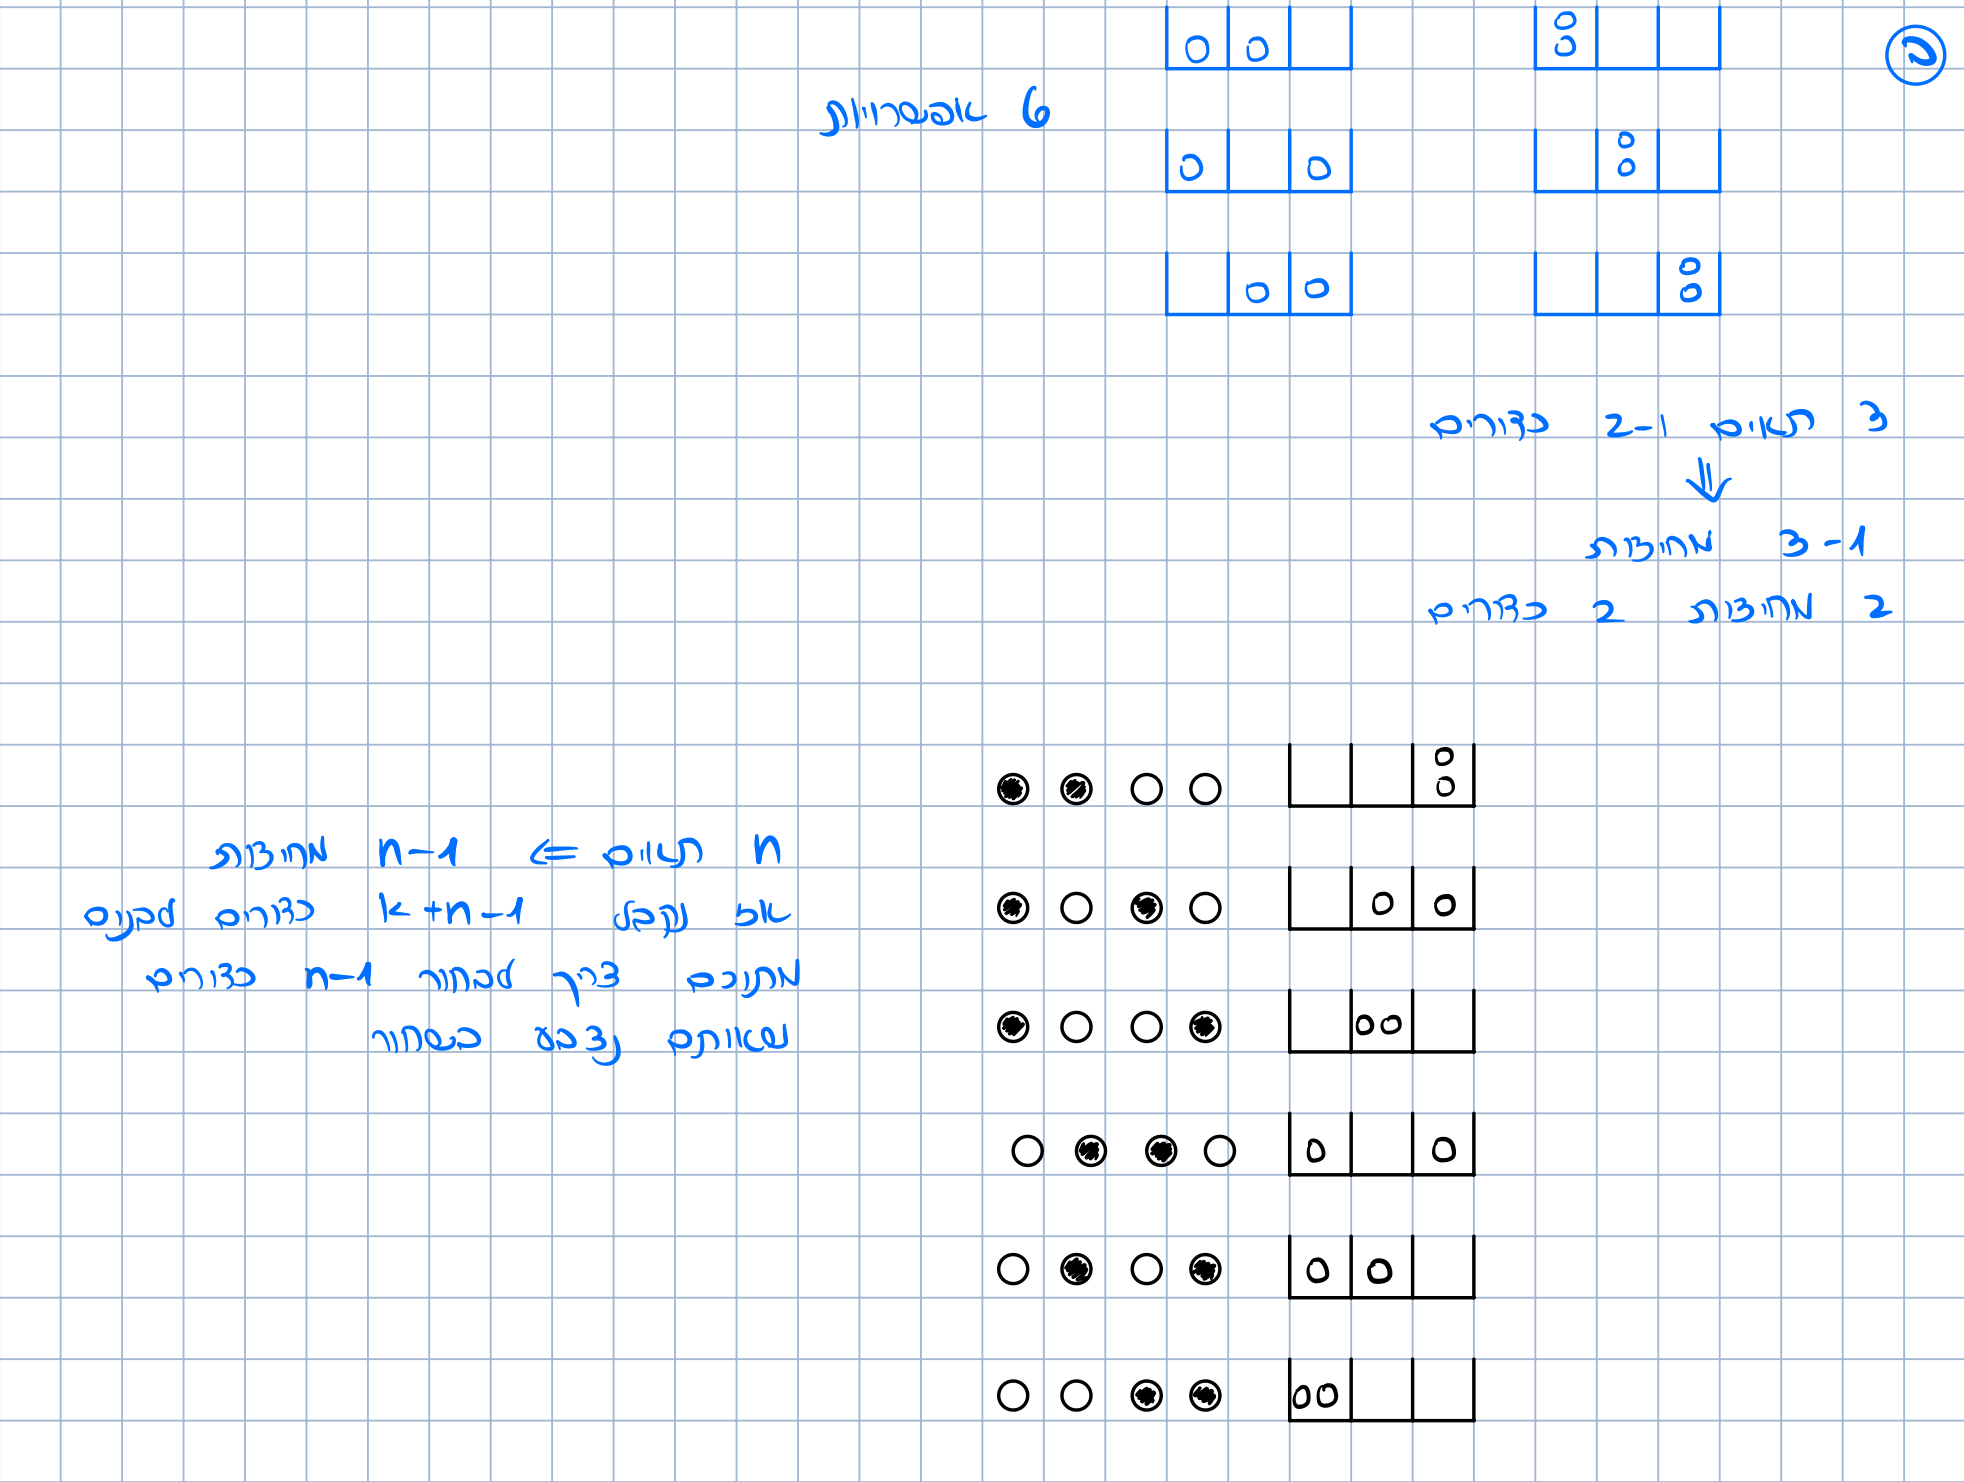 ג
6 אפשרויות
3 תאים ו-2 כדורים
⇓
3-1 מחיצות
2 מחיצות 2 כדורים
n תאים ⇐ n-1 מחיצות
אז נקבל k+n-1 כדורים לבנים
מתוכם צריך לבחור n-1 כדורים
שאותם נצבע בשחור